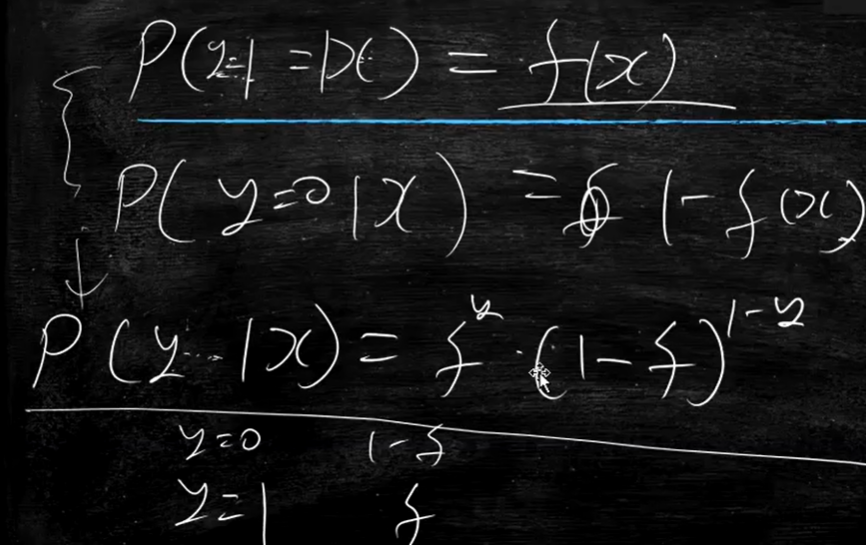 P(y=1 =|x) = f(x)
P(y=0|x) = 1-f(x)
P(y|x) = f^y·(1-f)^{1-y}
y=0 1-f
y=1 f